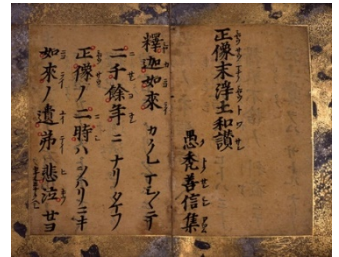 正像末淨土和讃
愚禿善信集
釋迦如來カクレマシ〱テ
二千餘年ニナリタマフ
正像ノ二時ハヲハリニキ
如來ノ遺弟悲泣セヨ